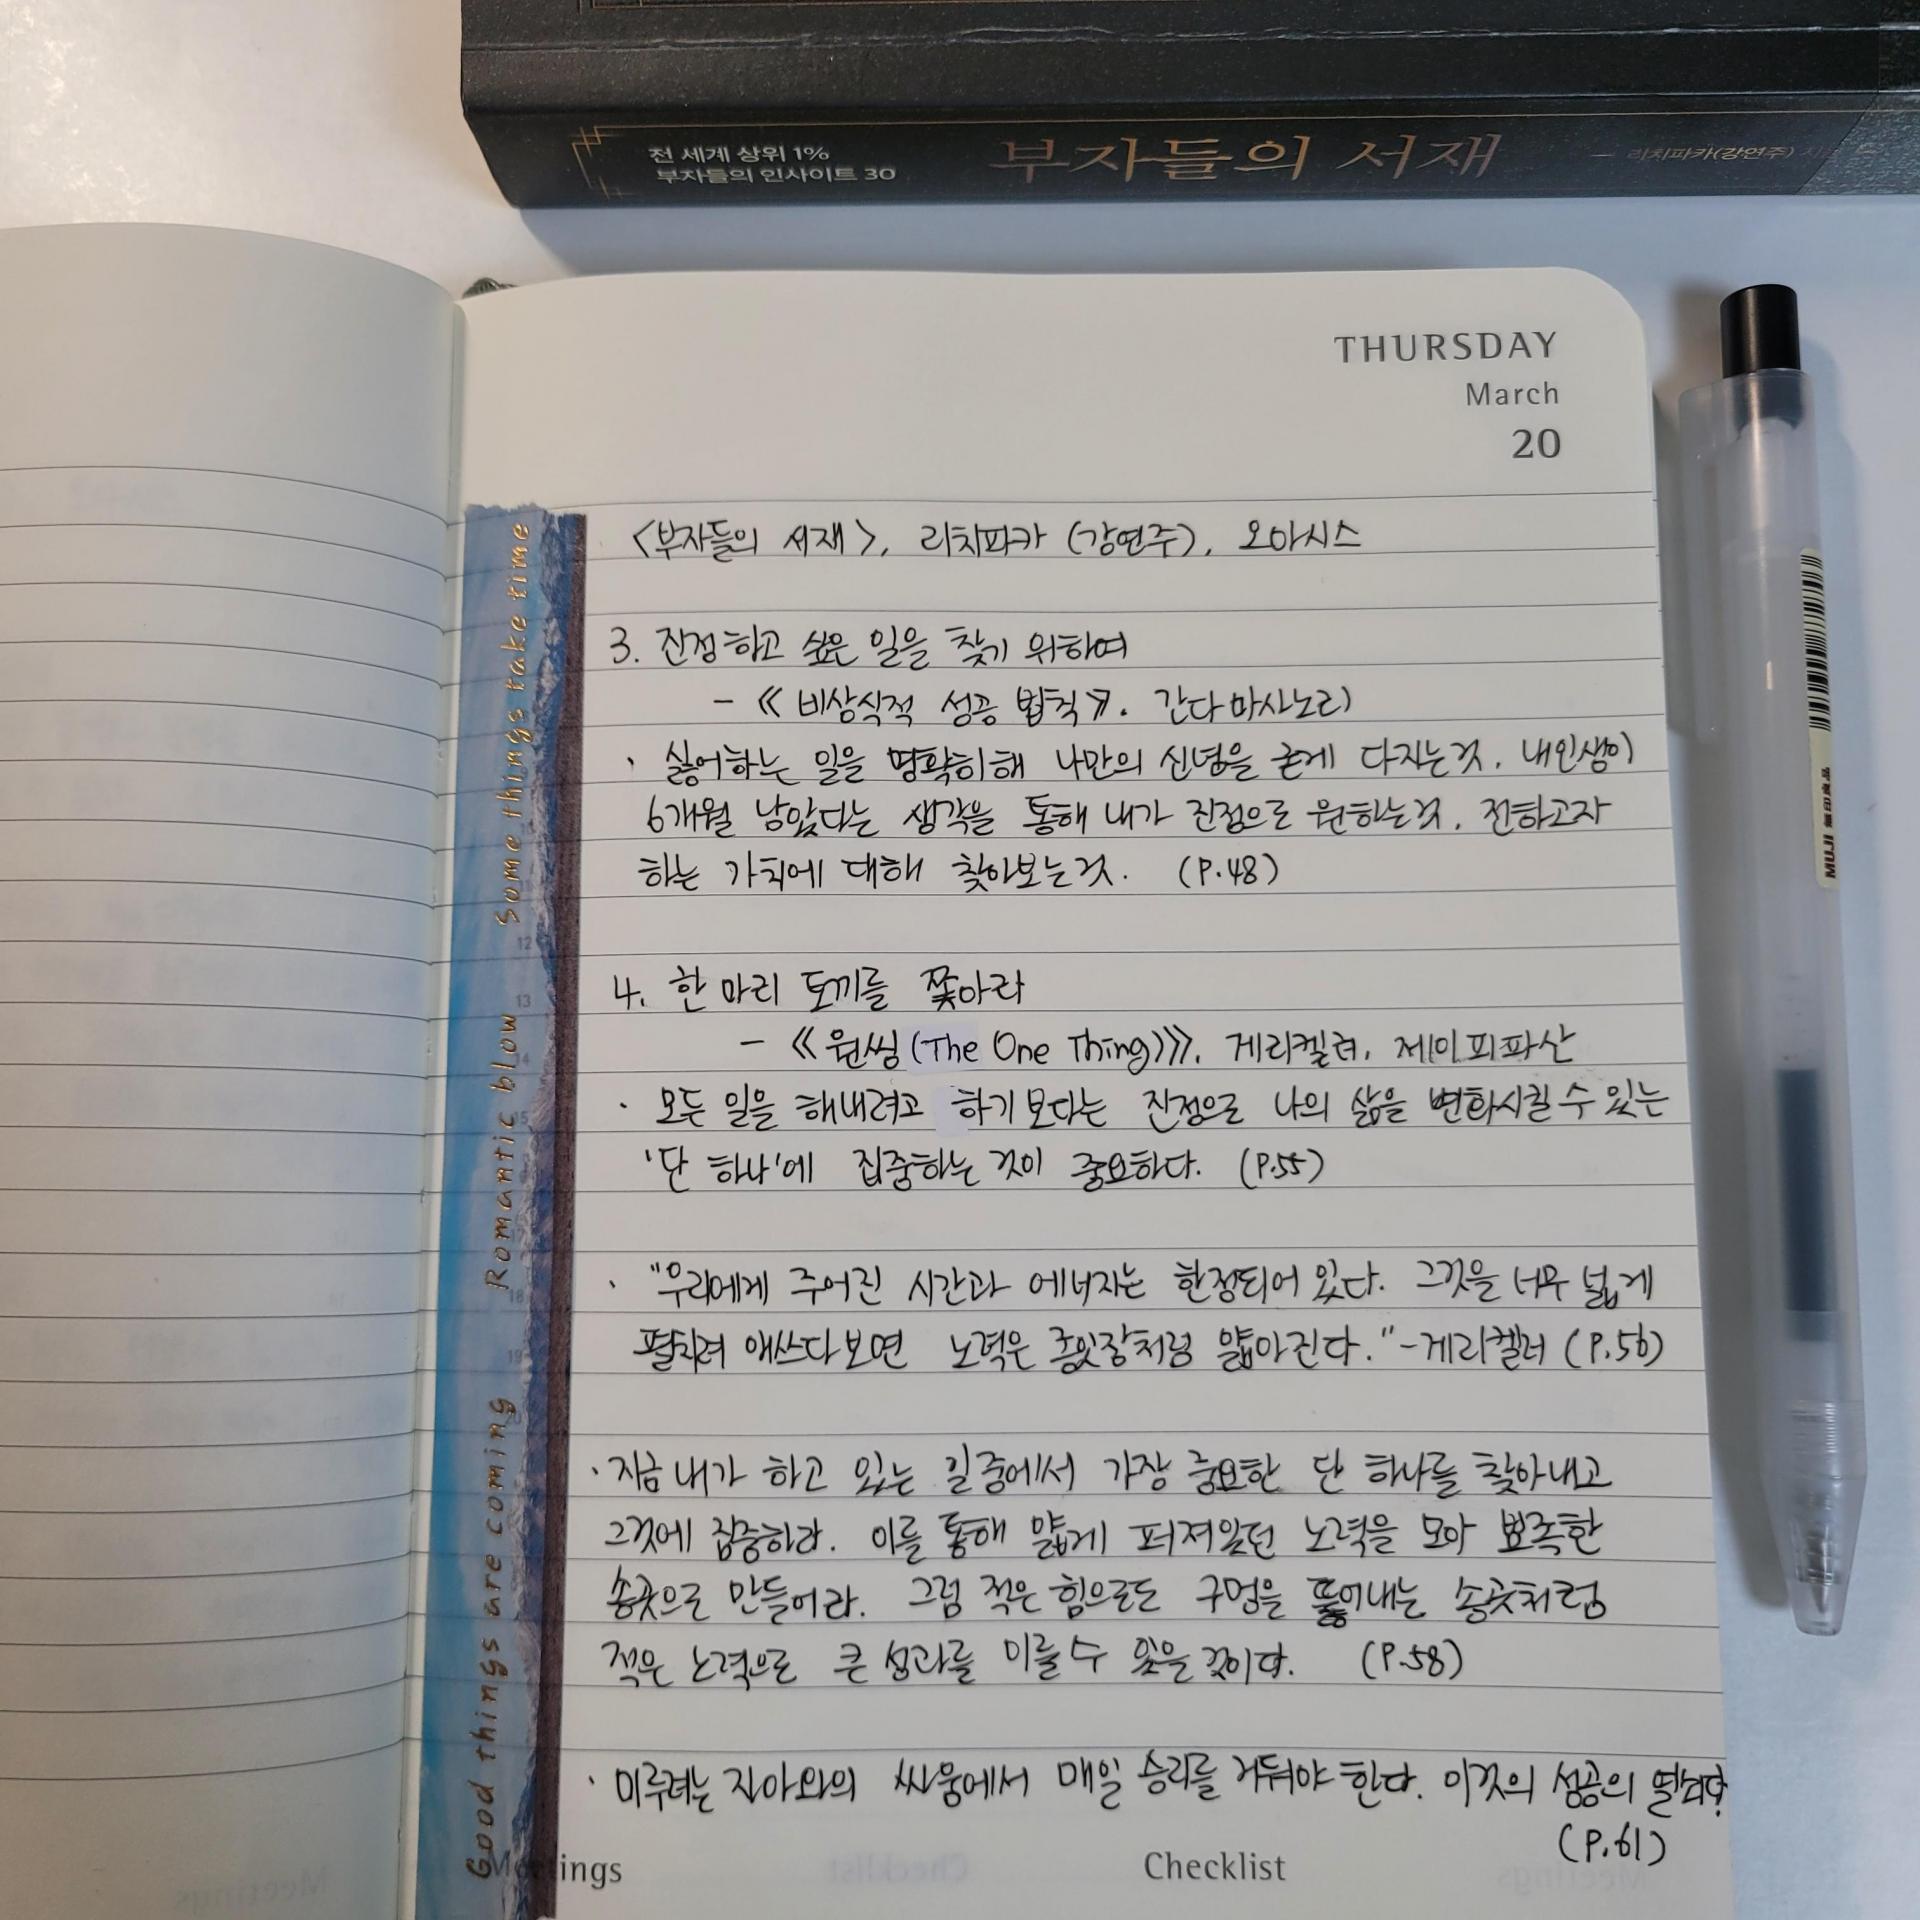 전 세계 상위 1%
부자들의 인사이트 30
부자들의 서재
리치파카(강연주)
THURSDAY
March
20
<부자들의 서재>, 리치파카 (강연주), 오아시스
3. 진정하고 싶은 일을 찾기 위하여
- 《비상식적 성공 법칙》. 간다 마사노리)
· 싫어하는 일을 명확히해 나만의 신념을 굳게 다지는것. 내인생이
6개월 남았다는 생각을 통해 내가 진정으로 원하는것, 전하고자
하는 가치에 대해 찾아보는것. (P.48)
4. 한 마리 토끼를 쫓아라
- 《원씽(The One Thing)》, 게리켈러, 제이피파산
· 모든 일을 해내려고 하기 보다는 진정으로 나의 삶을 변화시킬 수 있는
'단 하나'에 집중하는 것이 중요하다. (P.55)
· "우리에게 주어진 시간과 에너지는 한정되어 있다. 그것을 너무 넓게
펼치려 애쓰다보면 노력은 종잇장처럼 얇아진다." -게리켈러 (P.56)
· 지금 내가 하고 있는 일중에서 가장 중요한 단 하나를 찾아내고
그것에 집중하라. 이를 통해 얇게 퍼져있던 노력을 모아 뾰족한
송곳으로 만들어라. 그럼 적은 힘으로도 구멍을 뚫어내는 송곳처럼
적은 노력으로 큰 성과를 이룰 수 있을 것이다. (P.58)
· 미루려는 자아와의 싸움에서 매일 승리를 거둬야 한다. 이것의 성공의 열쇠다.
(P.61)
Some things take time
Romantic blow
Good things are coming
12
13
14
15
18
19
20
Meetings
Checklist
MUJI 無印良品